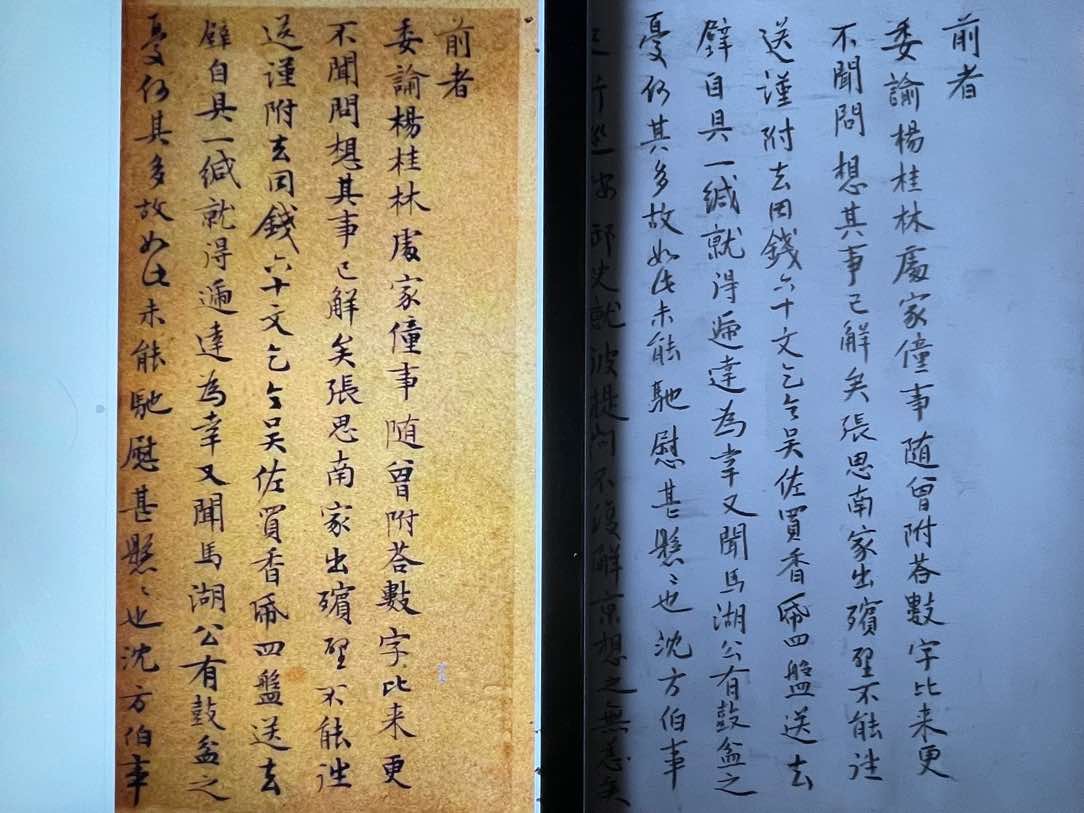 前者
委諭楊桂林處家僮事随曾附荅數字比来更
不聞問想其事已解矣張思南家出殯璧不能往
送謹附去因錢六十文乞令吴佐買香帋四盤送去
璧自具一緘就得遞達為幸又聞馬湖公有鼓盆之
憂何其多故如此未能馳慰甚懸〻也沈方伯事
前者
委諭楊桂林處家僮事随曾附荅數字比来更
不聞問想其事已解矣張思南家出殯璧不能往
送謹附去因錢六十文乞令吴佐買香帋四盤送去
璧自具一緘就得遞達為幸又聞馬湖公有鼓盆之
憂何其多故如此未能馳慰甚懸〻也沈方伯事
行巡按史就彼提问不復解京想之無恙矣